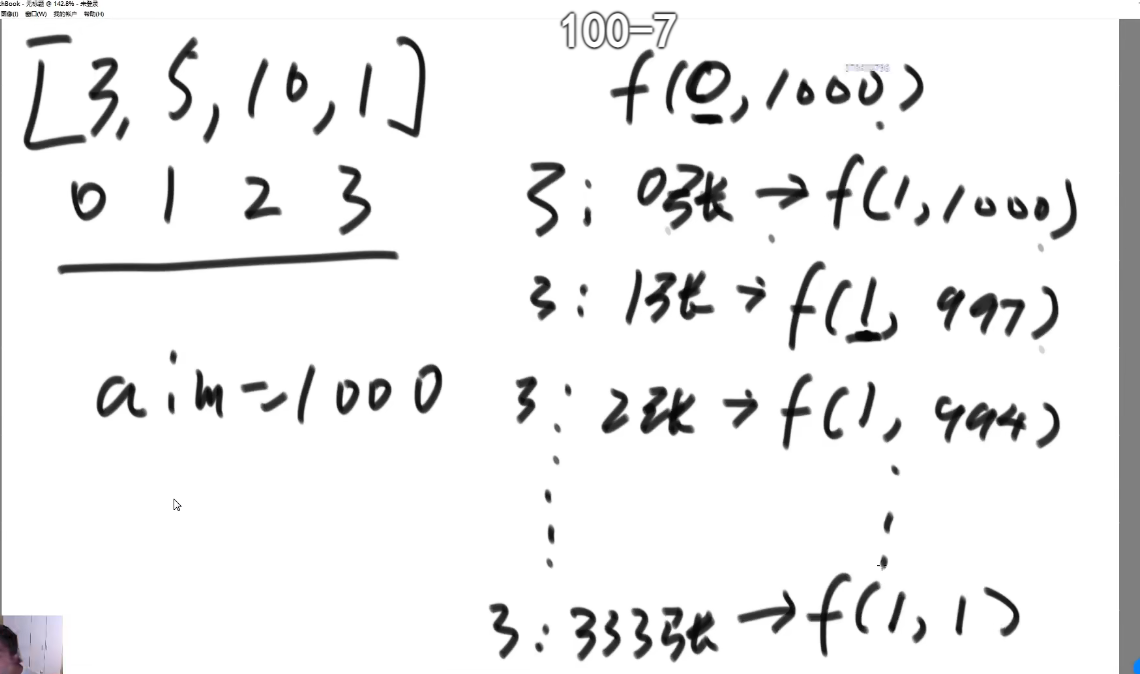 chBook - 无标题 @ 142.8% - 未登录
图像(I) 窗口(W) 我的帐户 帮助(H)
100-7
[3, 5, 10, 1]
0 1 2 3
aim=1000
f(0, 1000)
3: 0张 → f(1, 1000)
3: 1张 → f(1, 997)
3: 2张 → f(1, 994)
3: 333张 → f(1, 1)